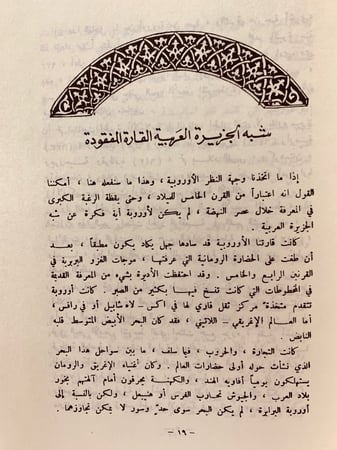 شبه الجزيرة العربية القارة المفقودة
إذا ما اتخذنا وجهة النظر الأوروبية ، وهذا ما سنفعله هنا ، أمكننا
القول انه اعتباراً من القرن الخامس للميلاد ، وحتى يقظة الرغبة الكبرى
في المعرفة خلال عصر النهضة ، لم يكن لأوروبة أية فكرة عن شبه
الجزيرة العربية .
كانت قارتنا الأوروبية قد سادها جهل يكاد يكون مطبقاً ، بعد
أن طغت على الحضارة الرومانية التي عرفتها ، موجات الغزو البربرية في
القرنين الرابع والخامس . وقد احتفظت الأديرة بشيء من المعرفة القديمة
في المخطوطات التي كانت تنسخ فيها بكثير من الصبر . كانت أوروبة
تتقدم متخذة مركز ثقل قاري لها في اكس - لا شابيل أو في رافس ،
أما العالم الإغريقي - اللاتيني ، فقد كان البحر الأبيض المتوسط قلبه
النابض .
كانت التجارة ، والحروب ، فيما سلف ، ما بين سواحل هذا البحر
الذي نشأت حوله أولى حضارات العالم . وكان أغنياء الإغريق والرومان
يستهلكون يومياً أفاويه الهند ، والكهنة يحرقون أمام آلهتهم بخور
بلاد العرب ، والجيوش تحاوب الفرس أو هنيبعل ، ولكن بالنسبة إلى
أوروبة البرابرة ، لم يكن البحر سوى حدّ وسور لا يمكن تجاوزهما .
- ١٩ -